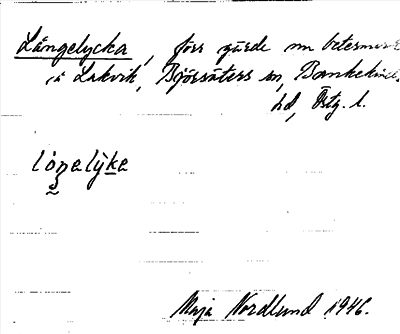 Långelycka, förr gärde nu betesmark
i Lakvik, Björsäters sn, Bankekinds
hd, Östg. l.
låŋelyke
Maja Nordlund 1946.